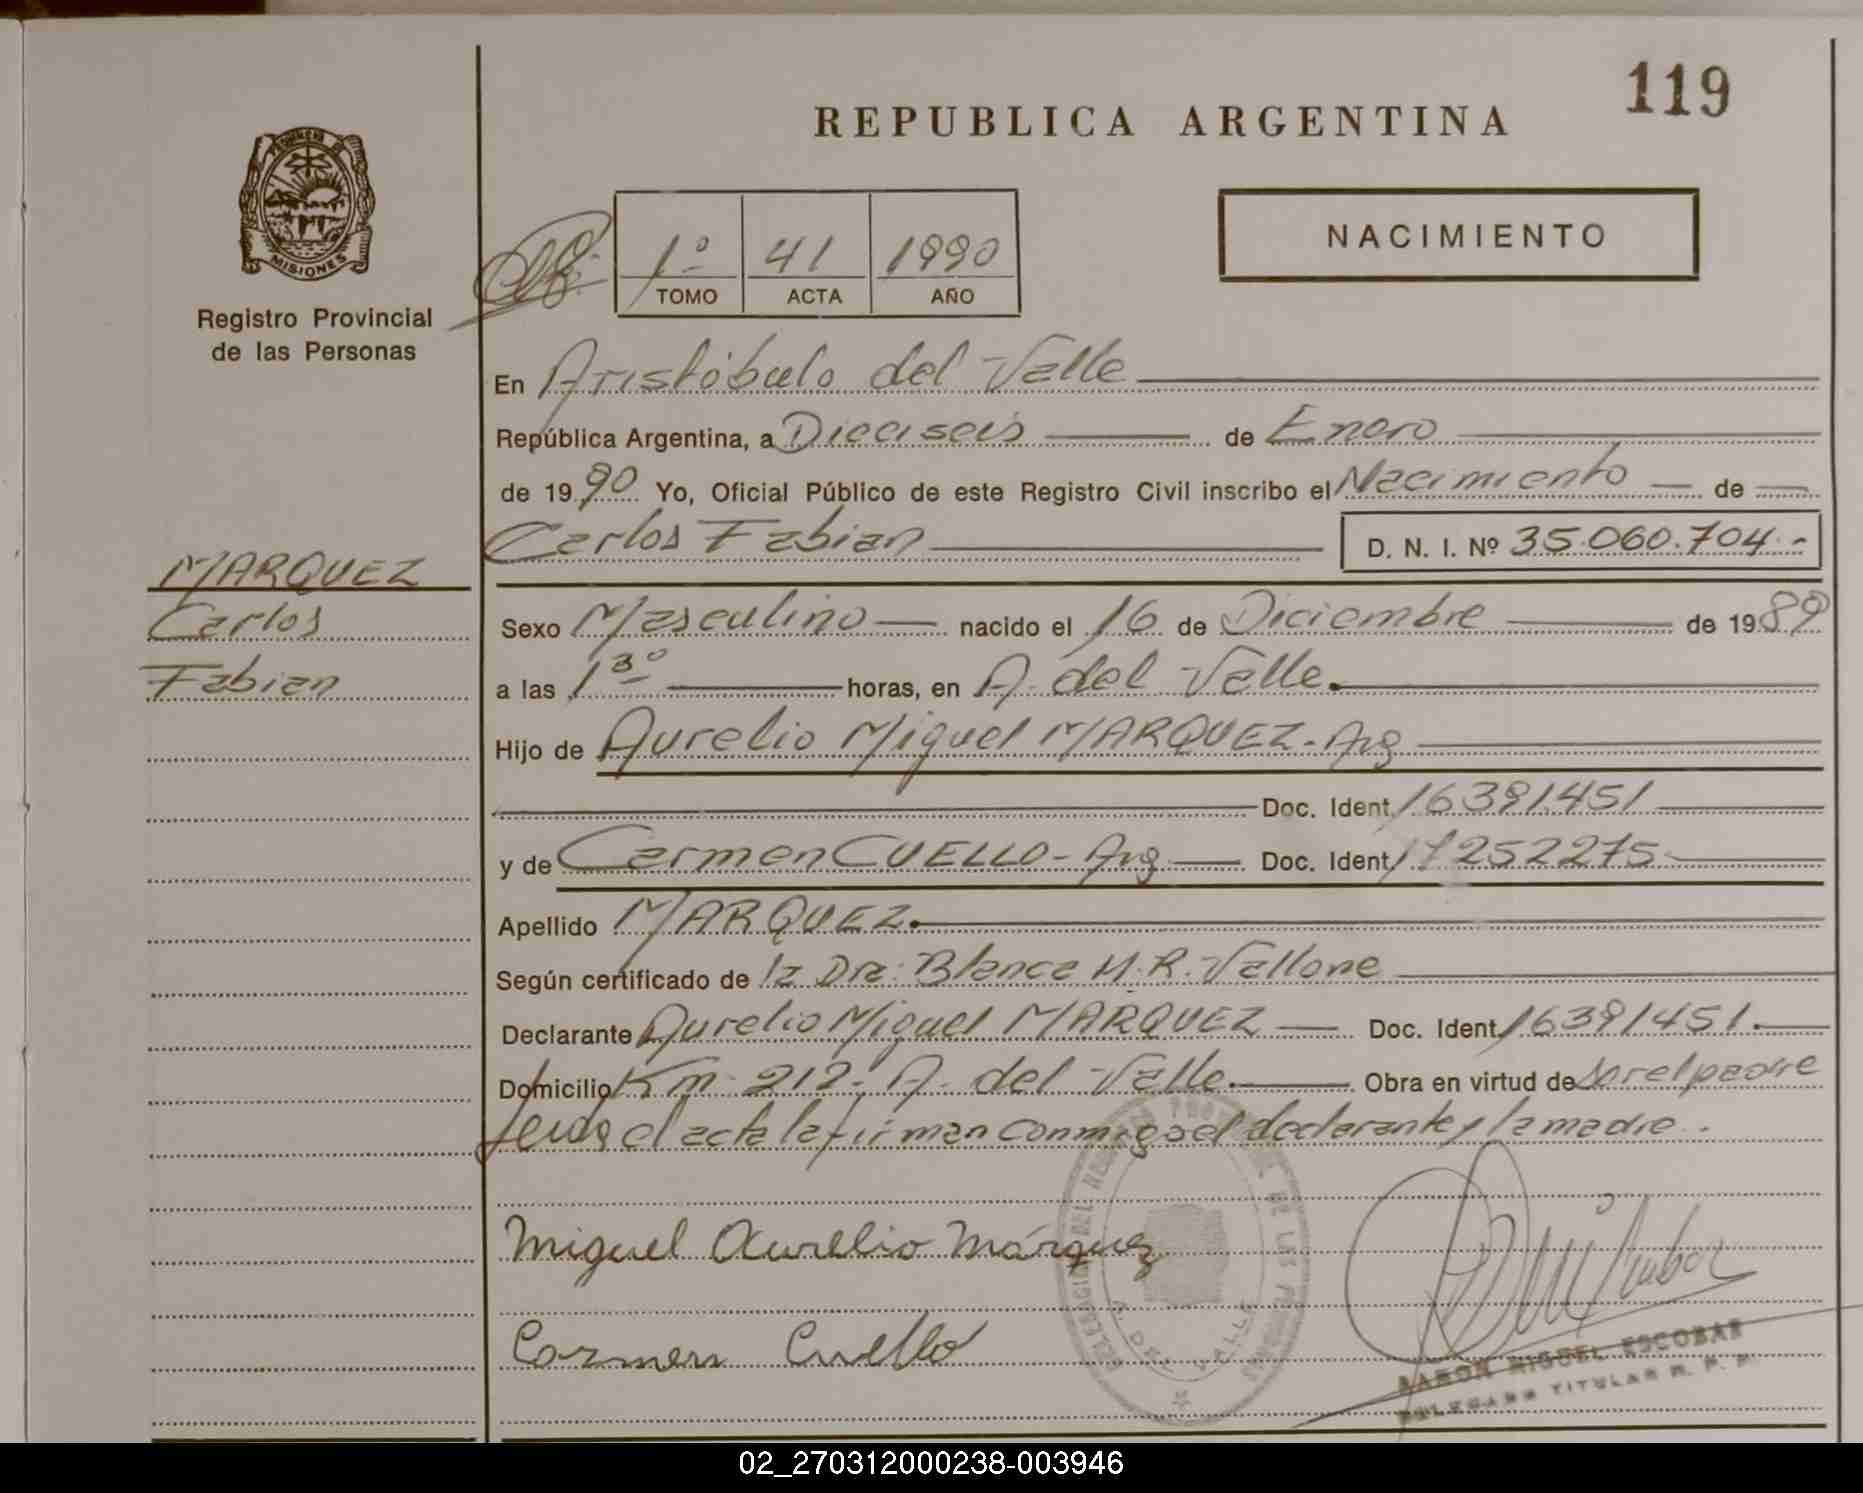 119
REPUBLICA ARGENTINA
MISIONES
Registro Provincial
de las Personas
1º 41 1990
TOMO ACTA AÑO
NACIMIENTO
En Aristóbulo del Valle
República Argentina, a Dieciseis de Enero
de 1990 Yo, Oficial Público de este Registro Civil inscribo el Nacimiento de
Carlos Fabian D. N. I. Nº 35.060.704.-
MARQUEZ
Carlos
Fabian
Sexo Masculino nacido el 16 de Diciembre de 1989
a las 1 3º horas, en A. del Valle.
Hijo de Aurelio Miguel MARQUEZ - Arg
Doc. Ident. 16391451
y de Carmen CUELLO - Arg Doc. Ident. 17252275
Apellido MARQUEZ.
Según certificado de la Dra: Blanca M. R. Vallone
Declarante Aurelio Miguel MARQUEZ Doc. Ident. 16391451.
Domicilio Km. 212. A. del Valle. Obra en virtud de ser el padre
leida el acta la firman conmigo el declarante y la madre.
Miguel Aurelio Márquez
Carmen Cuello
DELEGACION DEL REGISTRO PROVINCIAL DE LAS PERSONAS
A. DEL VALLE
RAMON MIGUEL ESCOBAR
DELEGADO TITULAR R. P. P.
02_270312000238-003946